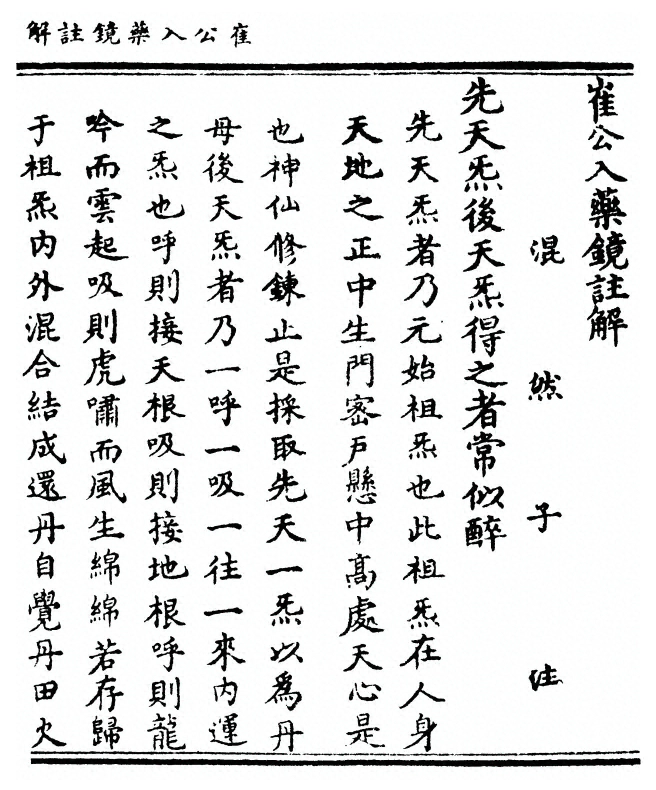 崔公入藥鏡註解
崔公入藥鏡註解
混然子註
先天炁後天炁得之者常似醉
先天炁者乃元始祖炁也此祖炁在人身
天地之正中生門密戶懸中高處天心是
也神仙修鍊止是採取先天一炁以為丹
母後天炁者乃一呼一吸一往一來內運
之炁也呼則接天根吸則接地根呼則龍
吟而雲起吸則虎嘯而風生綿綿若存歸
于祖炁內外混合結成還丹自覺丹田火